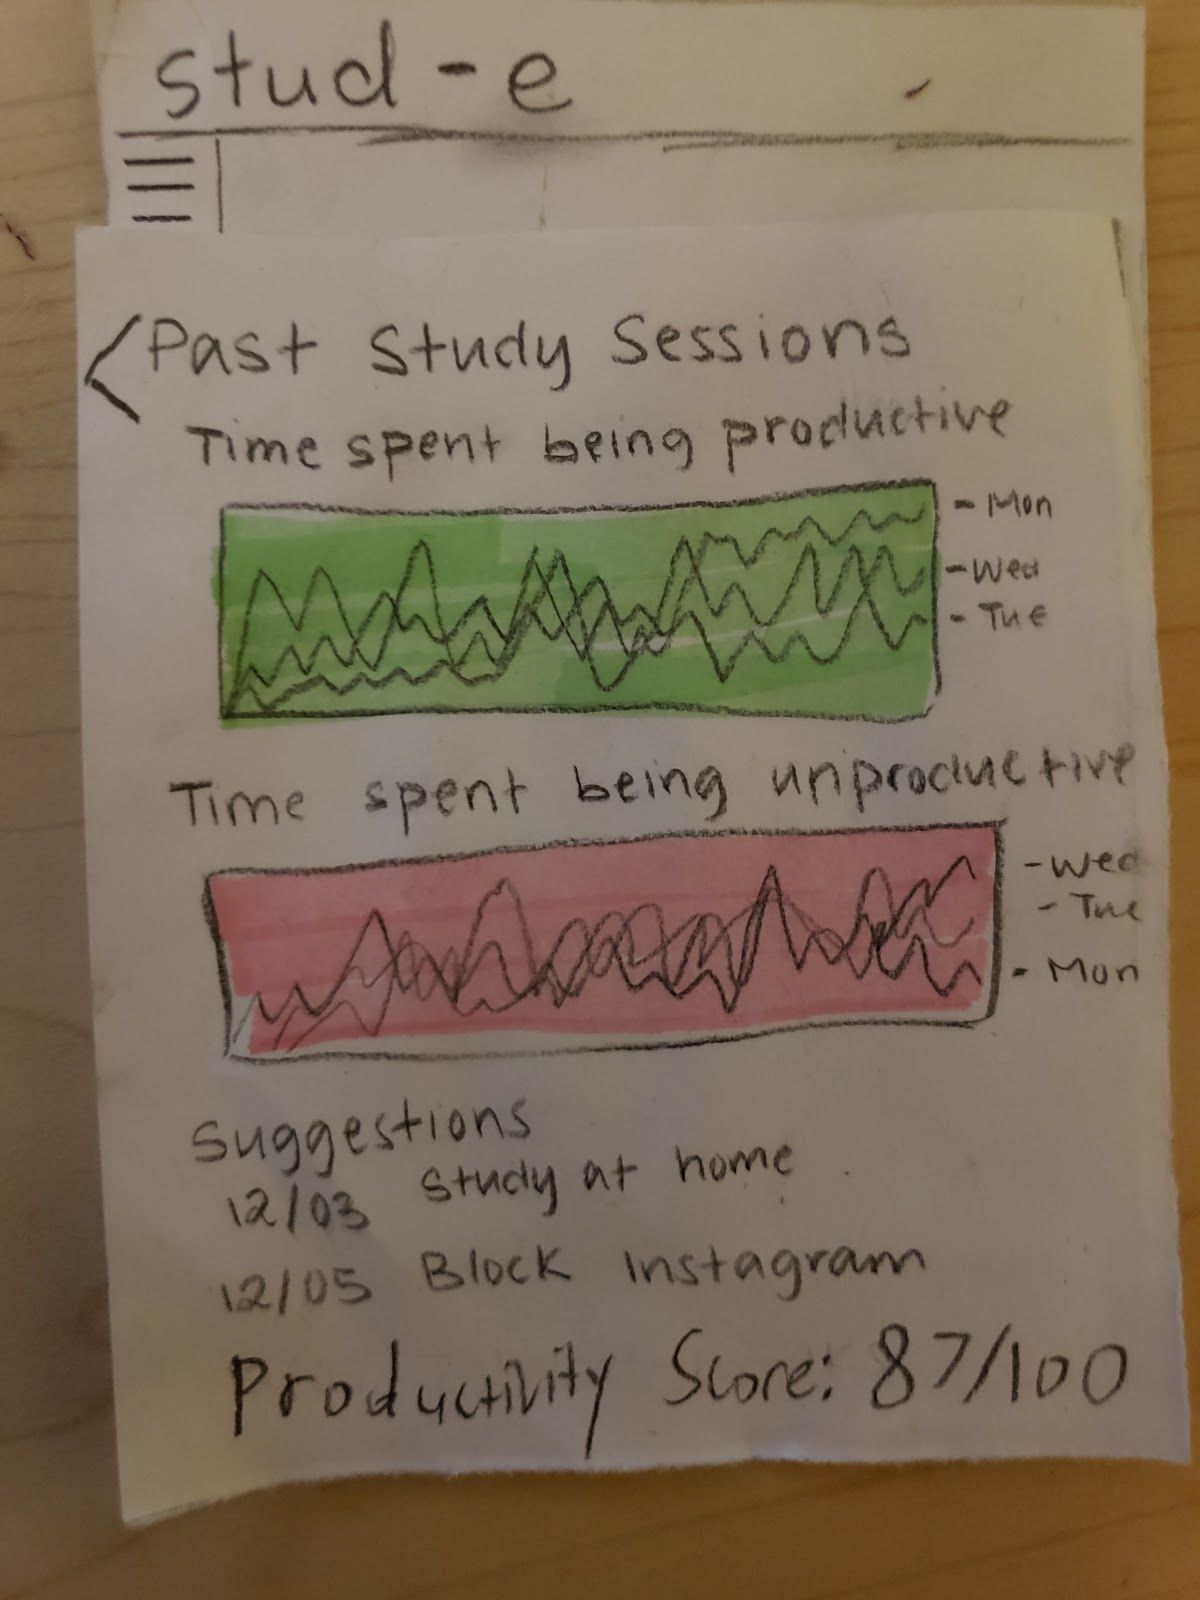 stud-e
Past Study Sessions
Time spent being productive
- Mon
- Wed
- Tue
Time spent being unproductive
- Wed
- Tue
- Mon
Suggestions
12/03 Study at home
12/05 Block Instagram
Productivity Score: 87/100